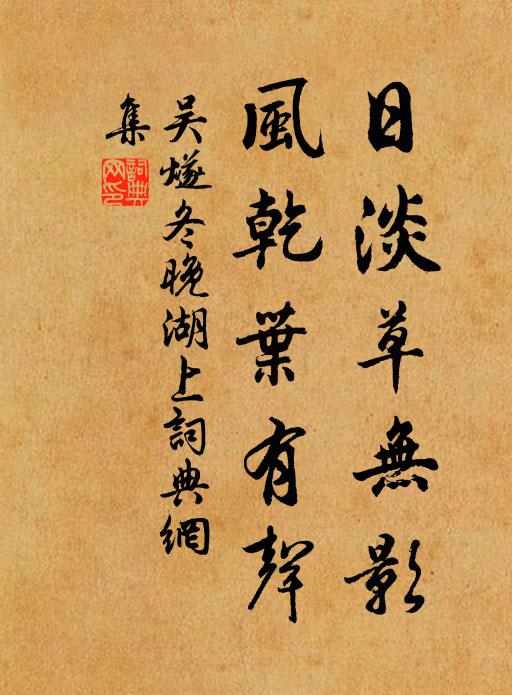 日淡草無影
風乾葉有聲
吴燧冬晚湖上詞典網
集
詞典
网印